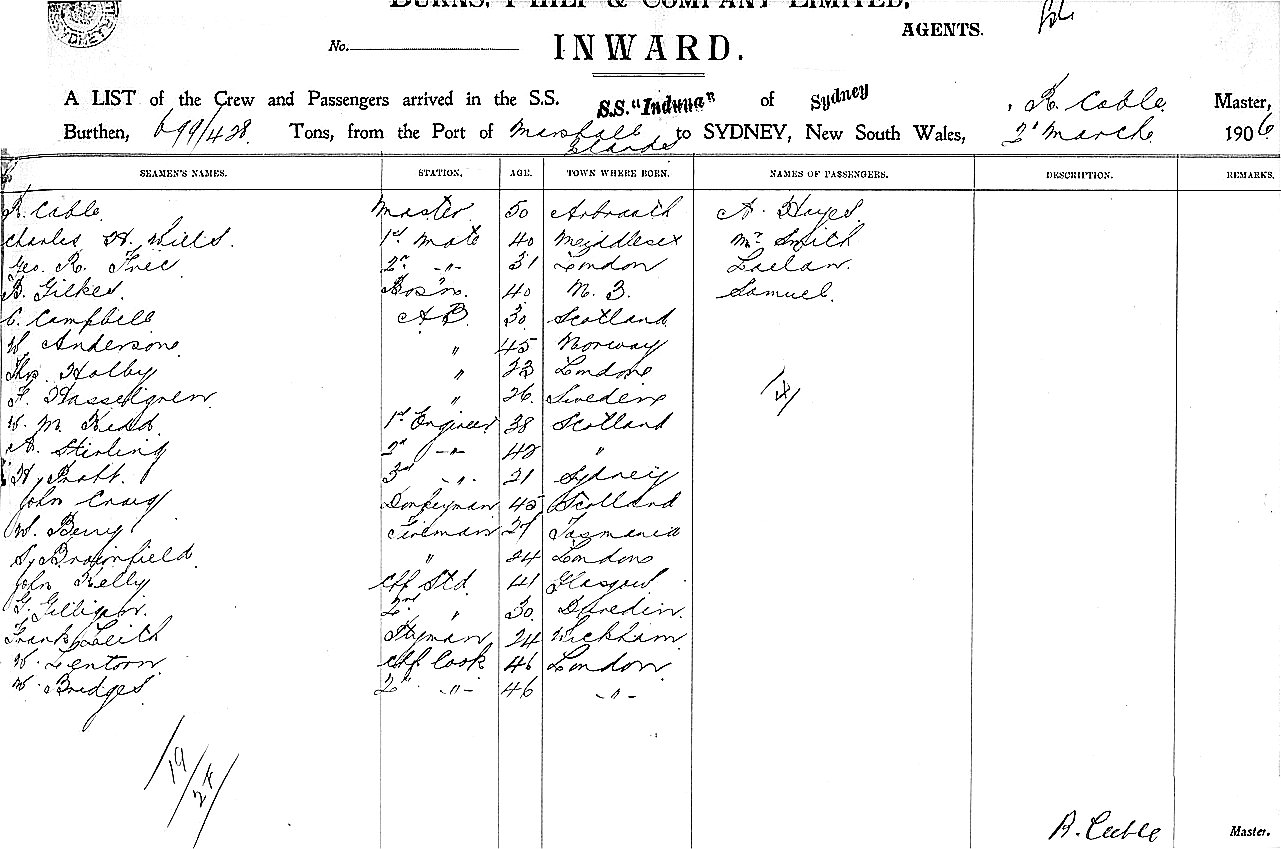 SYDNEY
BURNS, PHILP & COMPANY LIMITED,
AGENTS.
No.
INWARD.
A LIST of the Crew and Passengers arrived in the S.S. S.S. "Induna" of Sydney, R. Cable Master,
Burthen, 699/428 Tons, from the Port of Marshall Islands to SYDNEY, New South Wales, 2d March 1906
SEAMEN'S NAMES. STATION. AGE. TOWN WHERE BORN. NAMES OF PASSENGERS. DESCRIPTION. REMARKS.
R. Cable Master 50 Arbroath A. Hayes
Charles H. Wills. 1st Mate 40 Middlesex Mr Smith
Geo. R. 2nd -"- 31 London
B. Gilkes. Bos'n 40 N. Z. Samuel
C. Campbell A B. 30 Scotland
W. Anderson " 45 Norway
Thos. Holby " London
F. Hasselgren " 26 Sweden
W. M. Kidd. 1st Engineer 38 Scotland
A. Stirling 2nd -"- "
Hy Pratt. 3rd -"- 21 Sydney
John Craig Donkeyman 45 Scotland
W. Berry Fireman Tasmania
Sy Broomfield " 24 London
John Kelly Chf Std. 41 Glasgow
G. Gilligan. 2nd " 30 Dunedin
Frank Leith Ptyman 24 Wickham
W. Lentorn Chf Cook 46 London
W. Bridges 2nd -"- 46 -"-
19/24
R. Cable Master.